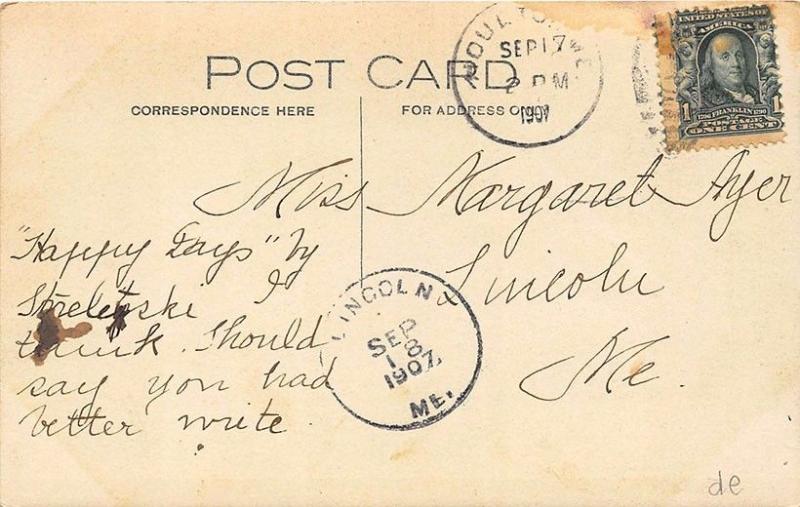 POST CARD
CORRESPONDENCE HERE
FOR ADDRESS ONLY
HOULTON, ME
SEP 17
2 PM
1907
UNITED STATES OF AMERICA
1706 FRANKLIN 1790
POSTAGE
1 ONE CENT 1
Miss Margaret Ayer
Lincoln
Me.
"Happy Days" by
Streletski I
think. Should
say you had
better write.
LINCOLN
SEP
18
1907
ME.
de